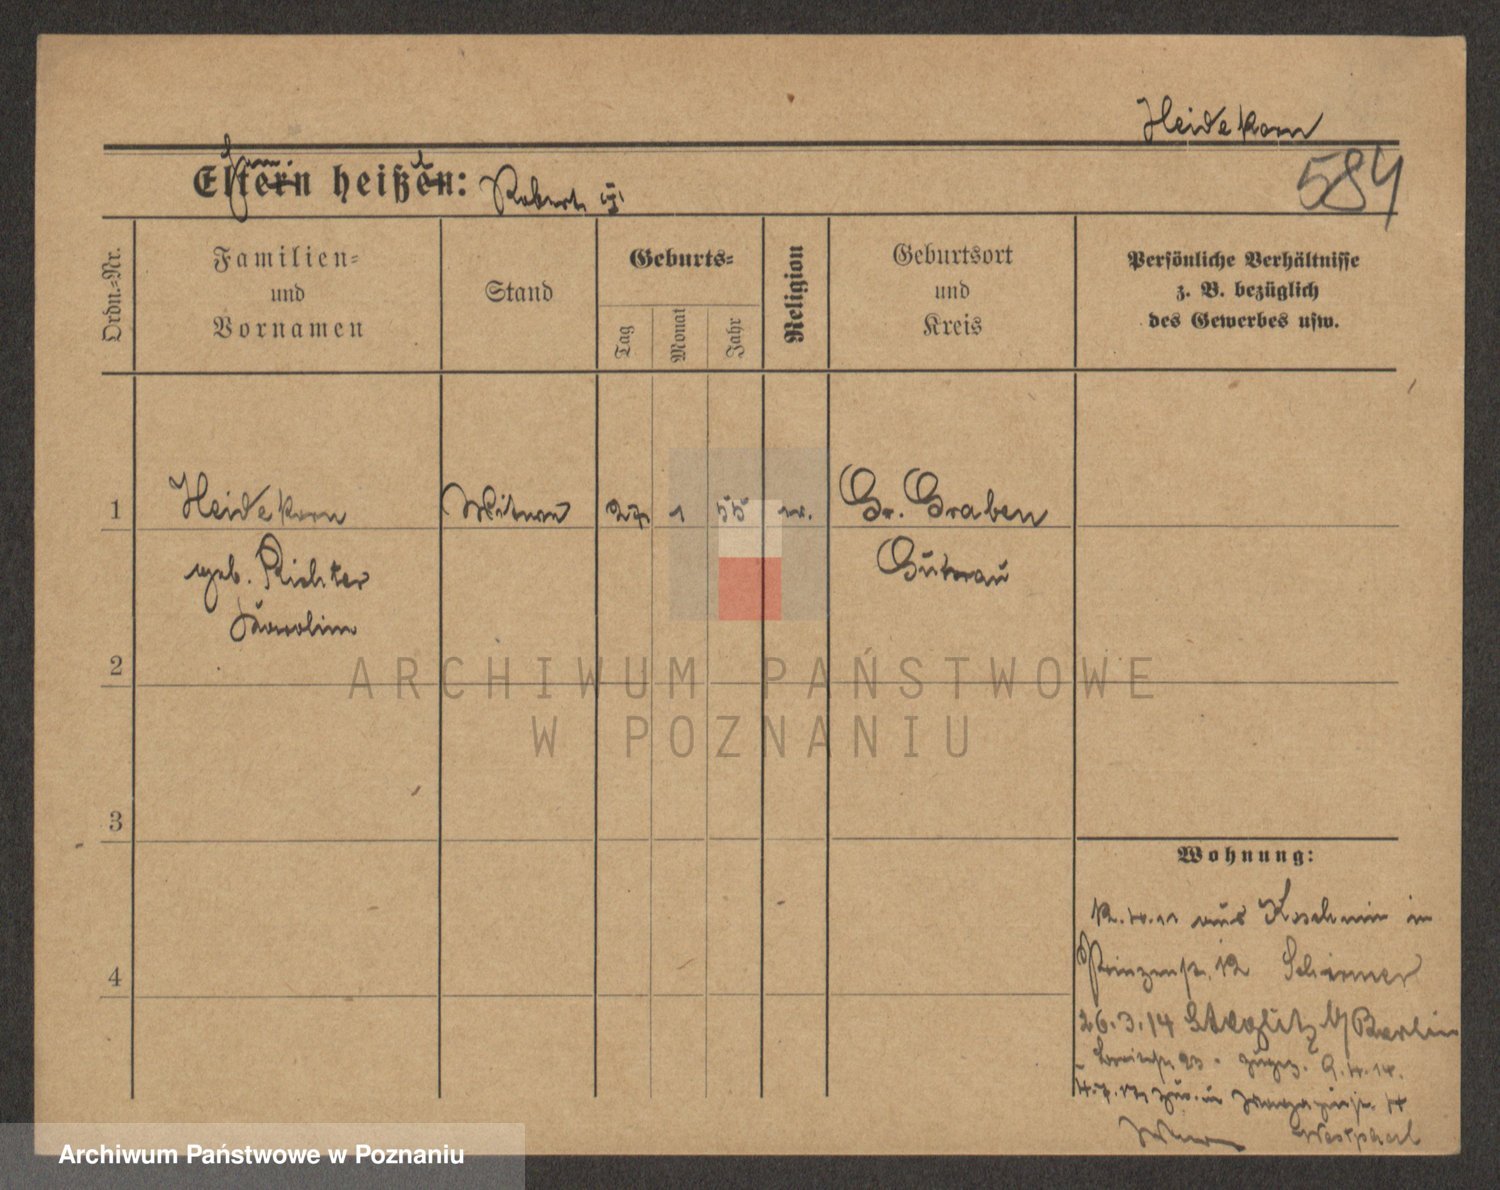 Heidekorn
584
Eltern heißen: Robert
Ordn.-Nr.
Familien-
und
Vornamen
Stand
Geburts-
Tag
Monat
Jahr
Religion
Geburtsort
und
Kreis
Persönliche Verhältnisse
z. B. bezüglich
des Gewerbes usw.
1 Heidekorn Witwe 27 1 55 Gr. Graben
geb. Richter Guhrau
Karolin
2
3
4
Wohnung:
aus Koschmin in
Prinzenstr. 12 Schirmer
26.3.14 Steglitz b/Berlin
zugez. 9.4.14.
4
Westphal
ARCHIWUM PAŃSTWOWE
W POZNANIU
Archiwum Państwowe w Poznaniu